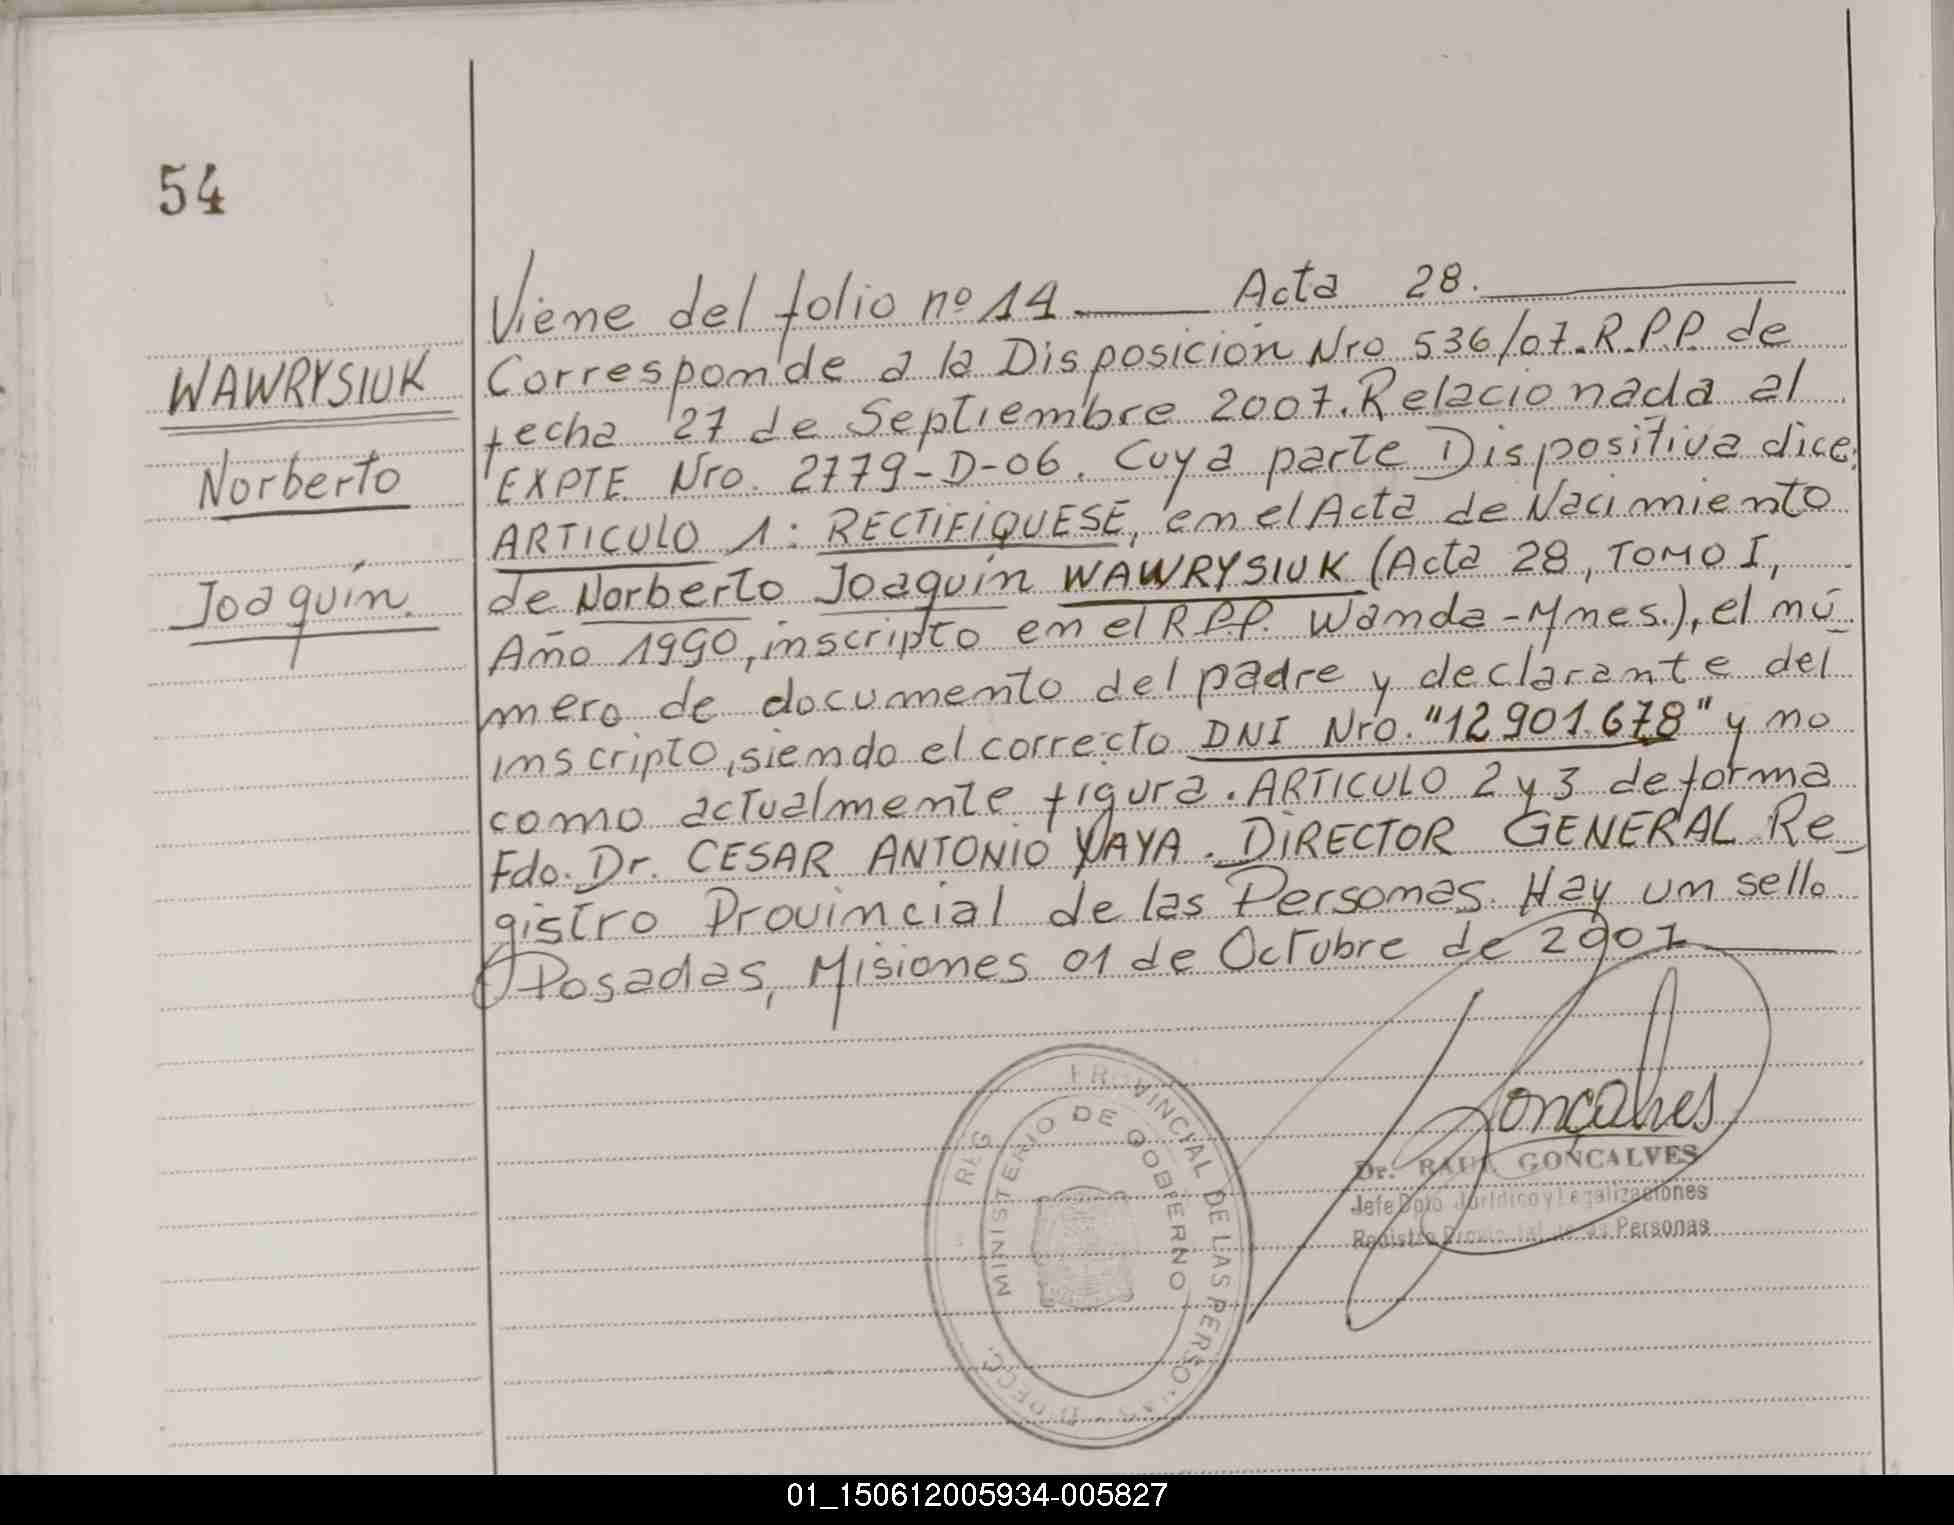 54
WAWRYSIUK
Norberto
Joaquín.
Viene del folio nº 14 Acta 28.
Corresponde a la Disposición Nro 536/07.R.P.P. de
fecha 27 de Septiembre 2007. Relacionada al
EXPTE Nro. 2779-D-06. Cuya parte Dispositiva dice:
ARTICULO 1: RECTIFIQUESE, en el Acta de Nacimiento
de Norberto Joaquín WAWRYSIUK (Acta 28, TOMO I,
Año 1990, inscripto en el R.P.P. Wanda-Mnes.), el nú
mero de documento del padre y declarante del
inscripto, siendo el correcto DNI Nro. "12901.678" y no
como actualmente figura. ARTICULO 2 y 3 de forma
Fdo. Dr. CESAR ANTONIO YAYA. DIRECTOR GENERAL Re_
gistro Provincial de las Personas. Hay un sello
Posadas, Misiones 01 de Octubre de 2007
Goncalves
Dr. RAUL GONÇALVES
Jefe Dpto Jurídico y Legalizaciones
Registro Provincial de las Personas
PROVINCIAL DE LAS PERSONAS
MINISTERIO DE GOBERNO
01_150612005934-005827